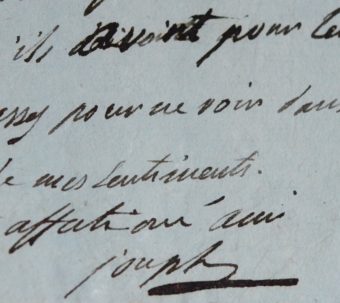 ils avoint pour le
assez pour ne voir dans
de mes sentiments.
affectioné ami
joseph